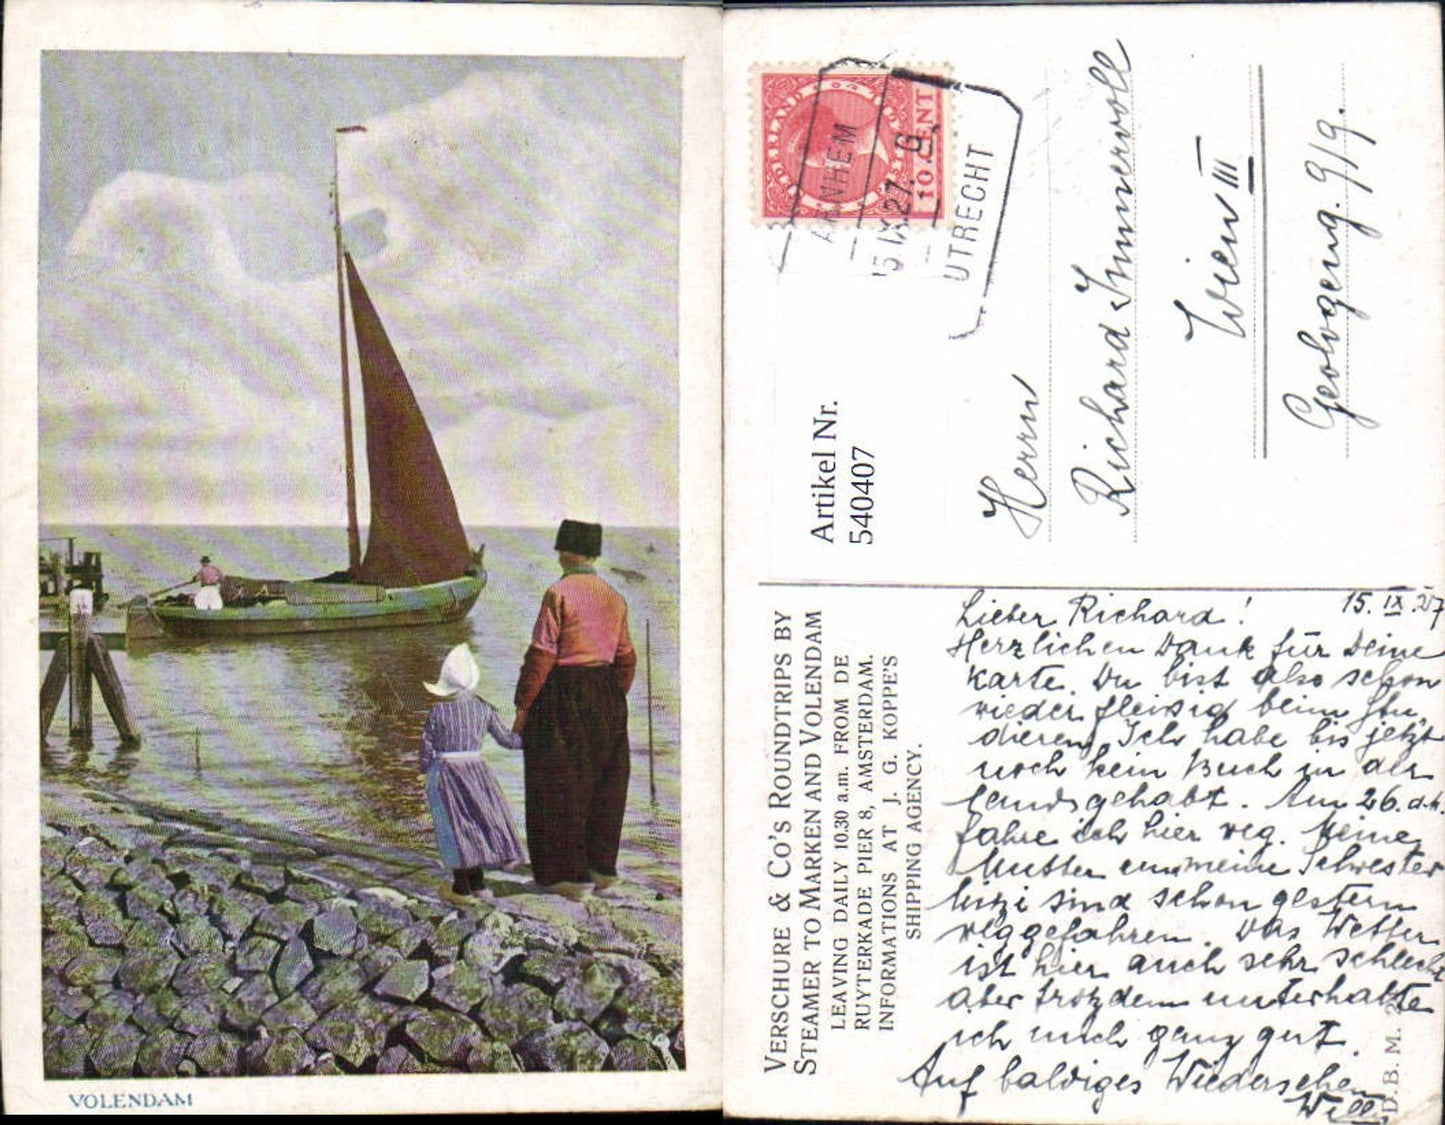 VOLENDAM
NEDERLAND
10 CENT
ARNHEM
15.IX.27. 6
UTRECHT
Artikel Nr.
540407
Herrn
Richard Immervoll
Wien III
Geologeng. 9/9.
VERSCHURE & CO'S ROUNDTRIPS BY
STEAMER TO MARKEN AND VOLENDAM
LEAVING DAILY 10.30 a.m. FROM DE
RUYTERKADE PIER 8, AMSTERDAM.
INFORMATIONS AT J. G. KOPPE'S
SHIPPING AGENCY.
15. IX. 27
Lieber Richard!
Herzlichen Dank für Deine
Karte. Du bist also schon
wieder fleissig beim Stu
dieren, Ich habe bis jetzt
noch kein Buch in der
Hand gehabt. Am 26. d.M.
fahre ich hier weg. Meine
Mutter und meine Schwester
Lizzi sind schon gestern
weggefahren. Das Wetter
ist hier auch sehr schlecht
aber trotzdem unterhalte
ich mich ganz gut.
Auf baldiges Wiedersehen
Willi
D.B.M.